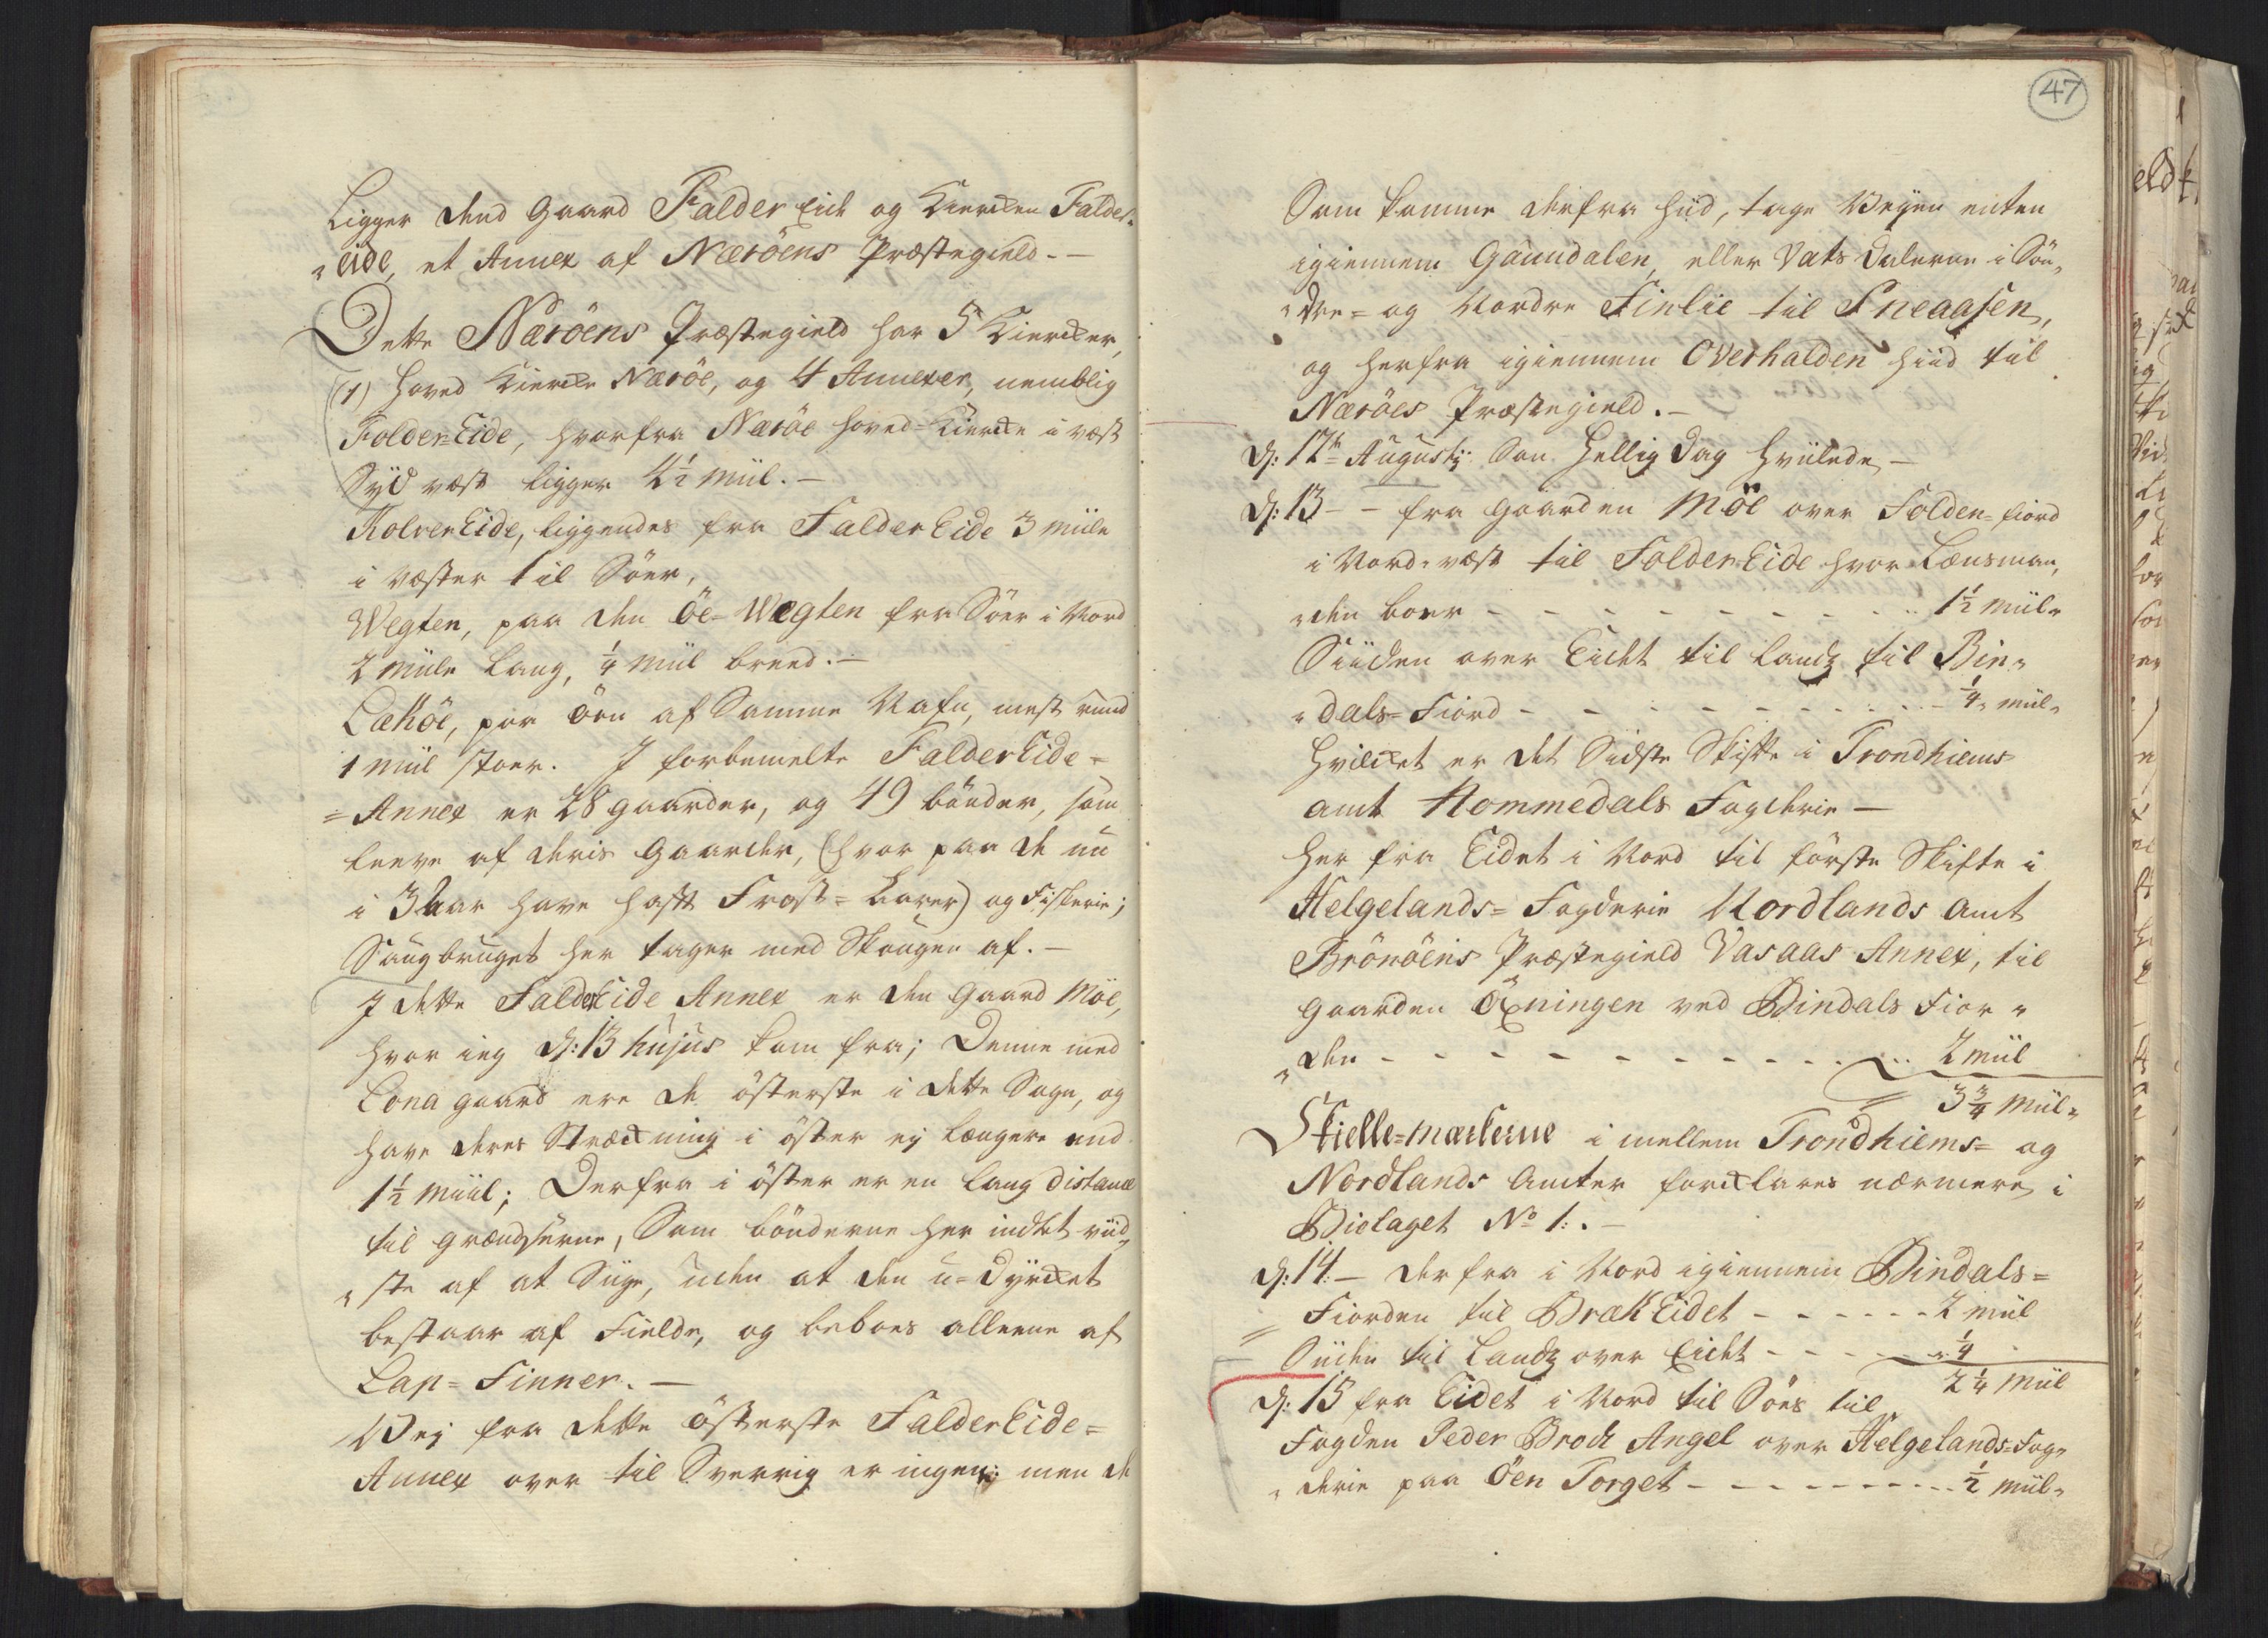 Ligger dend Gaard Falder Eide og Kiercken Falder-
„Eide, et Annex af Næröens Præstegield. —
Dette Næröens Præstegield har 5 Kiercker,
(1) Hoved Kiercke Næröe, og 4 Annexer, nemblig
Folder-Eide, hvorfra Næröe Hoved-Kiercke i væst
Syd væst ligger 4½ Miil. —
KolverEide, liggendes fra Falder Eide 3 Miile
i væster til Söer,
Wegten, paa den Öe-Wegten fra Söer i Nord
2 Miile Lang, ¼ Miil breed. —
Lækóe, paa Öen af Samme Nafn, mest rund
1 Miil stoer. I forbemelte FalderEide-
=Annex er 28 Gaarder, og 49 bönder, som
leeve af deris Gaarder, (hvor paa de nu
i 3 Aar have haft Frost-Aarer) og Fiskerie;
Saugbruget her tager med Skougen af. —
I dette FalderEide Annex er den Gaard Möe,
hvor ieg d: 13 hujus kom fra; Denne med
Lona gaard ere de österste i dette Sogn, og
have deres Stræckning i öster ej længere end
1½ Miil; Derfra i öster er en lang distance
til Grændserne, Som bönderne her indtet viid-
„ste af at Siige, uden at den u-dyrcket
bestaar af Fielde, og beboes alleene af
Lap-Finner. —
Vej fra dette österste FalderEide-
Annex over til Sverrig er ingen; men de
47
Som komme derfra hiid, tage Veyen enten
igiennem Gaundalen, eller Vats Dalerne i Sön-
„dre- og Nordre Finlie til Sneaasen,
og herfra igiennem Overhalden hiid til
Næröes Præstegield. —
d: 12te Augustij Son Hellig Dag Hviilede —
d: 13 - - fra Gaarden Möe over Folden-Fiord
i Nord-væst til FolderEide hvor Lensman-
„den boer - - - - - - - - 1½ Miil„
Siiden over Eidet til Landz til Bin-
„dals-Fiord - - - - - - - - ¼„ Miil„
Hvilcket er det Sidste Skifte i Trondhiems
amt Nommedals Fogderie —
Her fra Eidet i Nord til förste Skifte i
Helgelands-Fogderie Nordlands Amt
Brönöens Præstegield Vasaas Annex, til
Gaarden Öxningen ved Bindals Fior„
„den - - - - - - - - - - 2 Miil
3¾ Miil„
Skielle-mærkerne i mellem Trondhiems- og
Nordlands Amter forcklares nærmere i
Bielaget No 1: . —
d: 14: — derfra i Nord igiennem Bindals-
Fiorden til BrækEidet - - - - - - 2 Miil
Siiden til Landz over Eidet - - - - „ ¼
2¼ Miil
d: 15 fra Eidet i Nord til Söes til
Fogden Peder Broch Angel over Helgelands-Fog-
„derie paa Öen Torget - - - - - - - - ½ Miil„